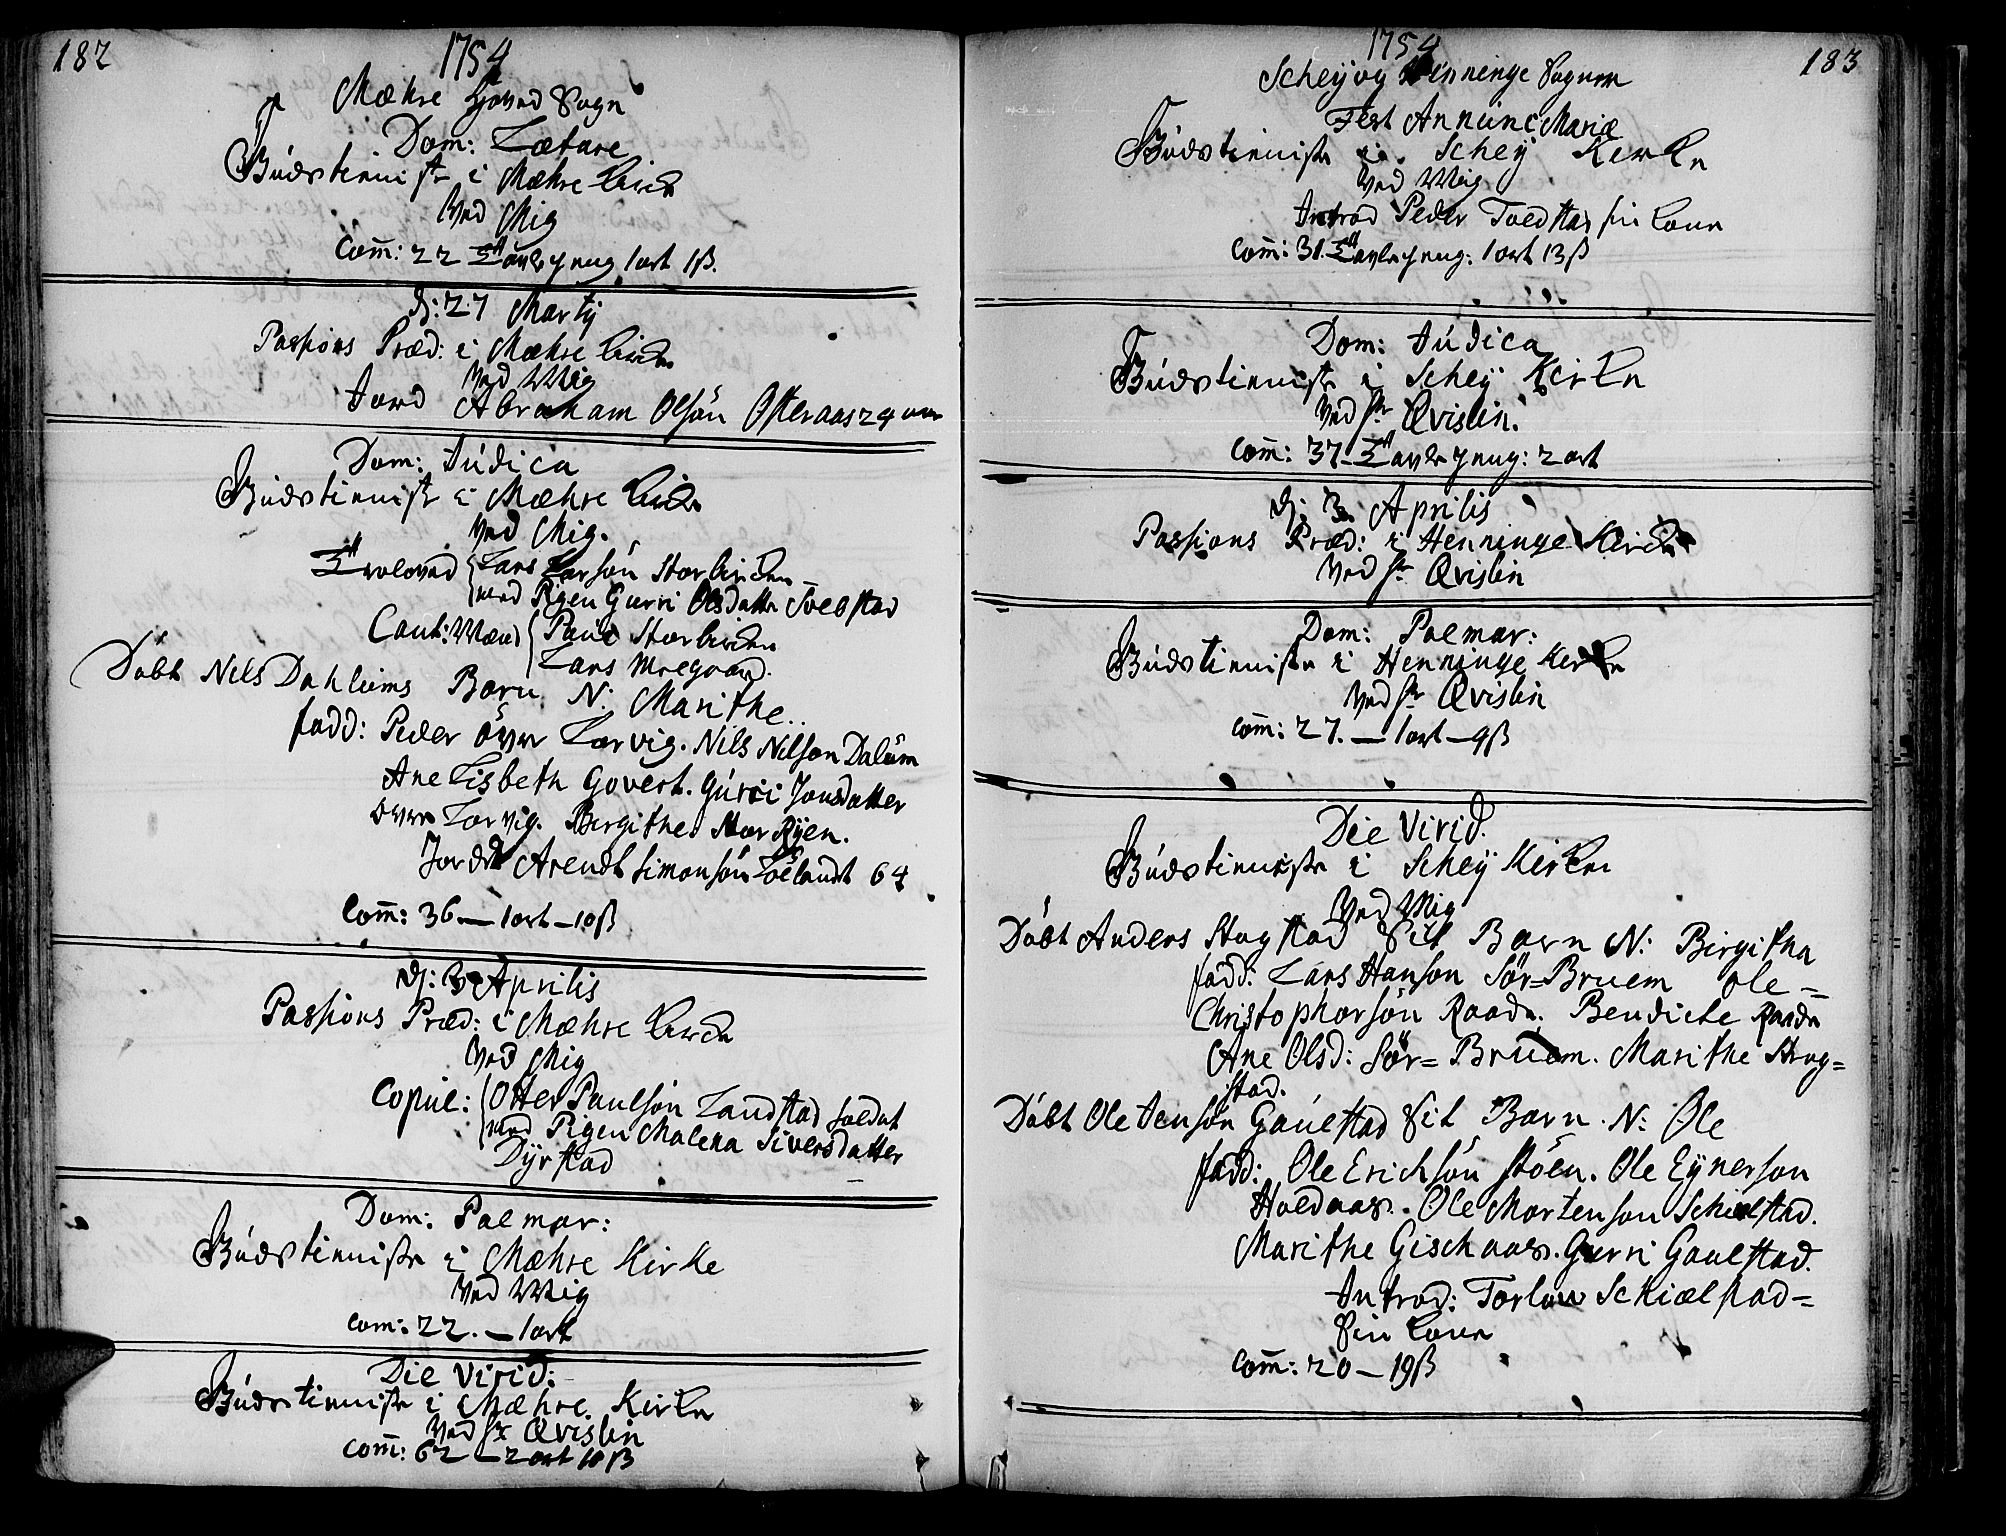 182
1754
Mæhre Hoved Sogn
Dom: Lætare
Gudstieniste i Mæhre Kircke
Ved Mig
Com̄: 22 Tavlepeng 1 ort 1ß.
dj: 27 Martij
Passions Præd: i Mæhre Kircke
Ved Mig
Jord Abraham Olsön Osteraas 24
Dom: Judica
Gudstieniste i Mæhre Kircke
Ved Mig.
Troloved Lars Larsön Storkircken
med Pigen Gurri Olsdatter Svebstad
Caut: Mænd Paul Storkircken
Lars
Döbt Nils Dahlums Barn N: Marithe..
fadd: Peder över Larvig. Nils Nilson Dalum
Ane Lisbeth Govert. Gurri Jonsdatter
över Larvig. Birgithe Stor Ryen.
Jordet Arendt Simonsön 64
Com̄: 36 — 1 ort — 10ß
dj: 3 Aprilis
Passions Præd: i Mæhre Kircke
Ved Mig
Copul: Otter Paulsön Landstad soldat
med Pigen Malena Siversdatter
Dyrstad
Dom: Palmar:
Gudstieniste i Mæhre Kirke
Ved Mig
Com: 22. — 1 ort
Die Virid:
Gudstieniste i Mæhre Kirke
Ved Hr Qvislin
Com̄: 62 — 2 ort 10ß
183
1754
Schey og Henninge Sogner
Fest Annunc Mariæ
Gudstieniste i Schey Kerke
Ved Mig
Introd Peder Tvedtaas sin Kone
Com̄: 31. Tavlepeng: 1 ort 13ß
Dom: Judica
Gudstieniste i Schey Kirke
Ved Hr Qvislin.
Com̄: 37 Tavlepeng: 2 ort
dj. 3. Aprilis
Passions Præd: i Henninge Kircke
Ved Hr Qvislin
Dom: Palmar:
Gudstieniste i Henninge Kerke
Ved Hr Qvislin
Com̄: 27. — 1 ort — 9ß
Die Virid.
Gudstieniste i Schey Kirke
Ved Mig
Döbt Anders Stogstad Sit Barn N: Birgitha
fadd: Lars Hanson Sör=Bruem Ole=
Christophersön Raade. Bendicte Raade
Ane Olsd: Sör= Bruem. Marithe Stog=
stad.
Döbt Ole Jensön Gaulstad Sit Barn. N: Ole
fadd: Ole Erichsön Stöen. Ole Eynerson
Holdaas. Ole Mortenson Schielstad.
Marithe Gischaas. Gurri Gaulstad.
Introd: Torlow Schielstad=
Sin Kone
Com̄: 20 — 19ß